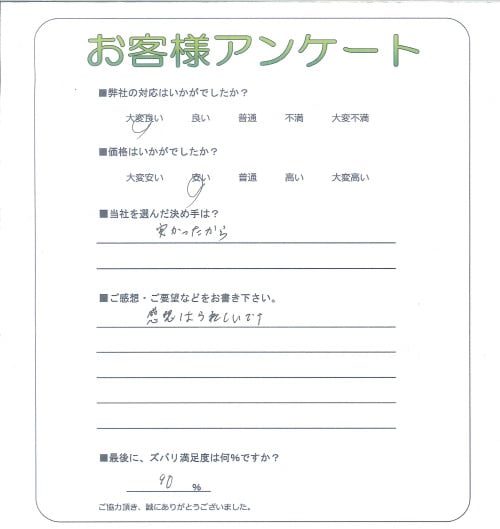 お客様アンケート
■弊社の対応はいかがでしたか？
大変良い 良い 普通 不満 大変不満
■価格はいかがでしたか？
大変安い 安い 普通 高い 大変高い
■当社を選んだ決め手は？
安かったから
■ご感想・ご要望などをお書き下さい。
感想はうれしいです
■最後に、ズバリ満足度は何%ですか？
90 %
ご協力頂き、誠にありがとうございました。